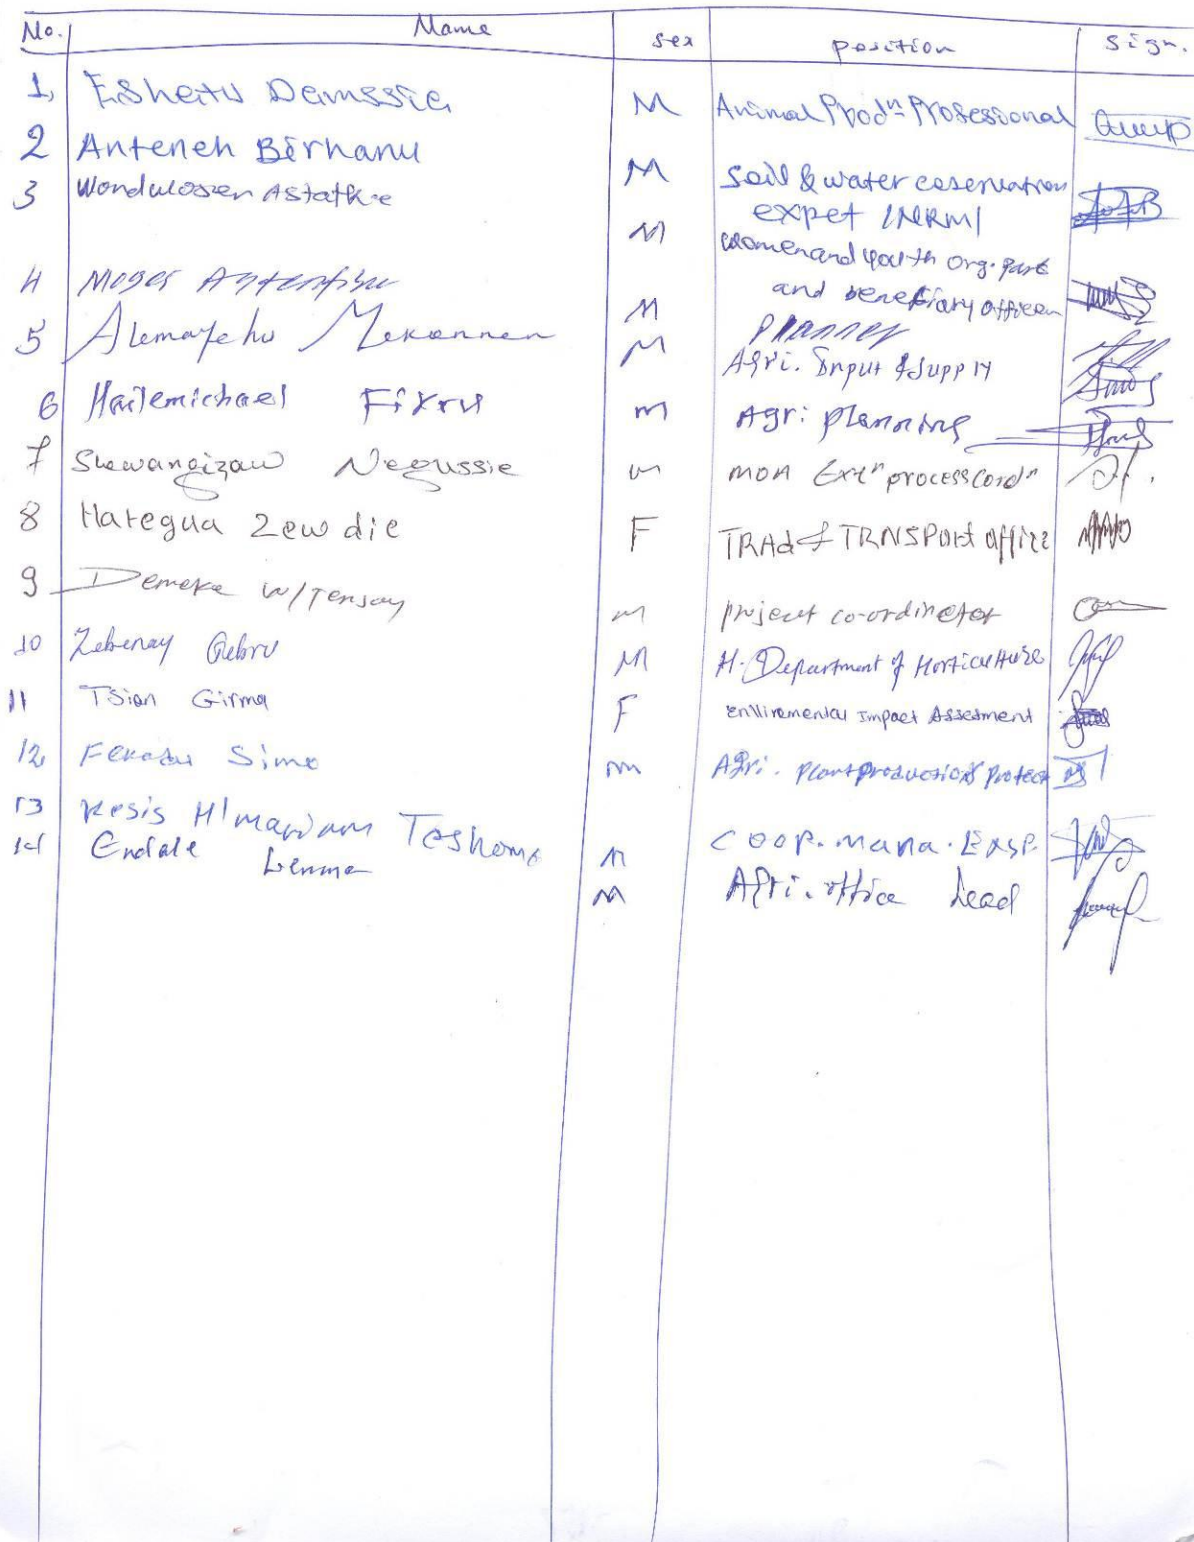 No. Name sex position sign.
1, Eshetu Demssie M Animal Prodn Professional
2 Anteneh Birhanu M soil & water coservation
expet /NRM/
3 Wondwossen Astatkie M women and youth org. part
and benefiary officer
4 Moges M Planner
5 Alemayehu Mekonnen M Agri. Input & supply
6 Hailemichael Fikru m Agri planning
7 Shewangizaw Negussie m MOA Extn process cordn
8 Haregua Zewdie F TRAd & TRNSPort office
9 Demeke w/Tensay m project co-ordinetor
10 Zebenay Gebru M H. Department of Horticulture
11 Tsion Girma F Enviremental Impact Assesment
12 Fekadu Simo m Agri. plant production & protec
13 Kesis H/mariam Teshome m coop. mana. Exp.
14 Endale Lemma M Agri. office Lead